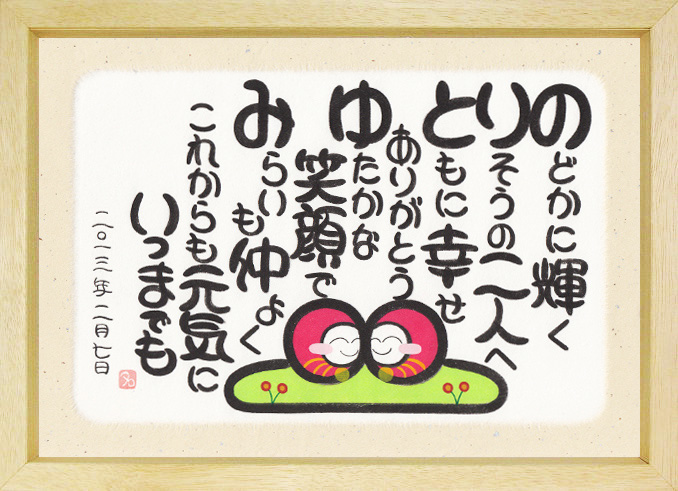 のどかに輝く
りそうの二人へ
ともに幸せ
ありがとう
ゆたかな
笑顔で
みらいも仲よく
これからも元気に
いつまでも
二〇一三年二月七日